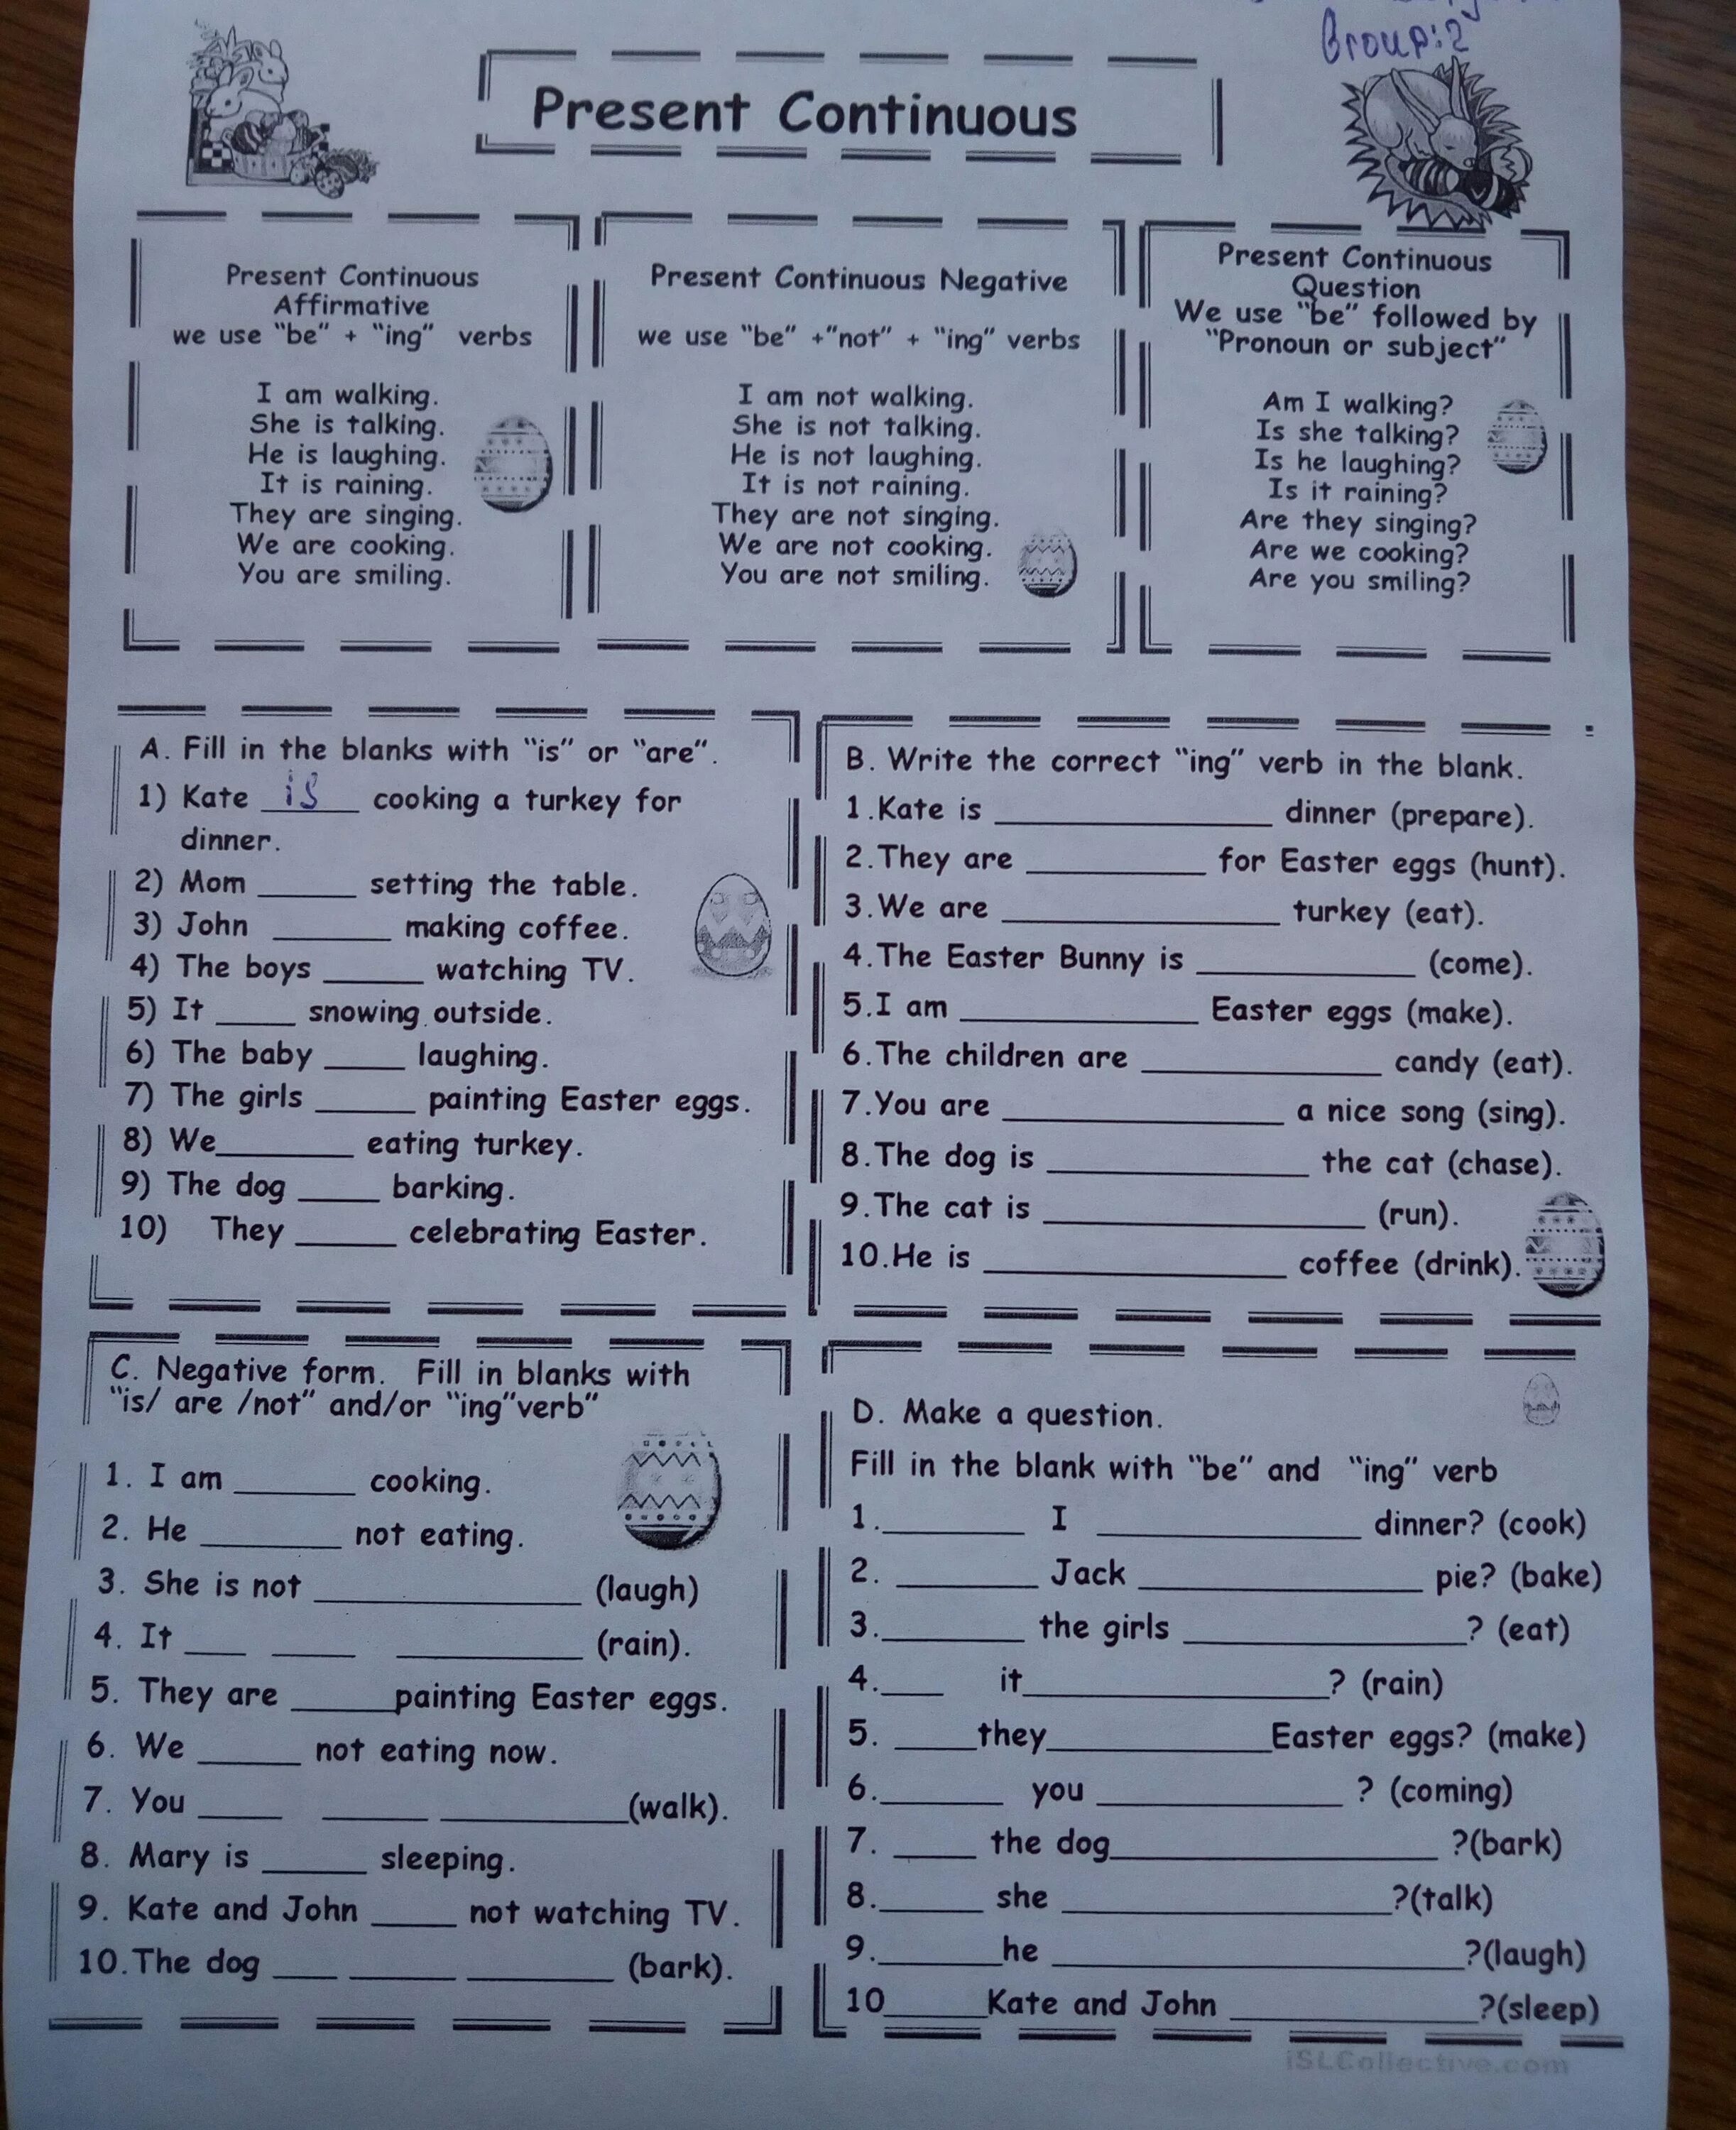 Group:2
Present Continuous
Present Continuous
Affirmative
we use "be" + "ing" verbs
I am walking.
She is talking.
He is laughing.
It is raining.
They are singing.
We are cooking.
You are smiling.
Present Continuous Negative
we use "be" +"not" + "ing" verbs
I am not walking.
She is not talking.
He is not laughing.
It is not raining.
They are not singing.
We are not cooking.
You are not smiling.
Present Continuous
Question
We use "be" followed by
"Pronoun or subject"
Am I walking?
Is she talking?
Is he laughing?
Is it raining?
Are they singing?
Are we cooking?
Are you smiling?
A. Fill in the blanks with "is" or "are".
1) Kate is cooking a turkey for
dinner.
2) Mom ______ setting the table.
3) John _______ making coffee.
4) The boys ______ watching TV.
5) It _____ snowing outside.
6) The baby _____ laughing.
7) The girls ______ painting Easter eggs.
8) We________ eating turkey.
9) The dog _____ barking.
10) They ______ celebrating Easter.
B. Write the correct "ing" verb in the blank.
1.Kate is ______________ dinner (prepare).
2.They are _________ for Easter eggs (hunt).
3.We are ______________ turkey (eat).
4.The Easter Bunny is ___________ (come).
5.I am ____________ Easter eggs (make).
6.The children are ____________ candy (eat).
7.You are ______________ a nice song (sing).
8.The dog is _____________ the cat (chase).
9.The cat is ________________ (run).
10.He is _______________ coffee (drink).
C. Negative form. Fill in blanks with
"is/ are /not" and/or "ing"verb"
1. I am ______ cooking.
2. He _______ not eating.
3. She is not _____________ (laugh)
4. It ___ ____ _________ (rain).
5. They are _____painting Easter eggs.
6. We _____ not eating now.
7. You ____ _____ _________(walk).
8. Mary is _____ sleeping.
9. Kate and John ____ not watching TV.
10.The dog ___ _____ _______ (bark).
D. Make a question.
Fill in the blank with "be" and "ing" verb
1._______ I _____________ dinner? (cook)
2. _______ Jack ______________ pie? (bake)
3._______ the girls ______________? (eat)
4.___ it_______________? (rain)
5. ____they___________Easter eggs? (make)
6.______ you ____________ ? (coming)
7. ____ the dog________________ ?(bark)
8._____ she ________________?(talk)
9.______he ____________________?(laugh)
10_____Kate and John ____________?(sleep)
iSLCollective.com